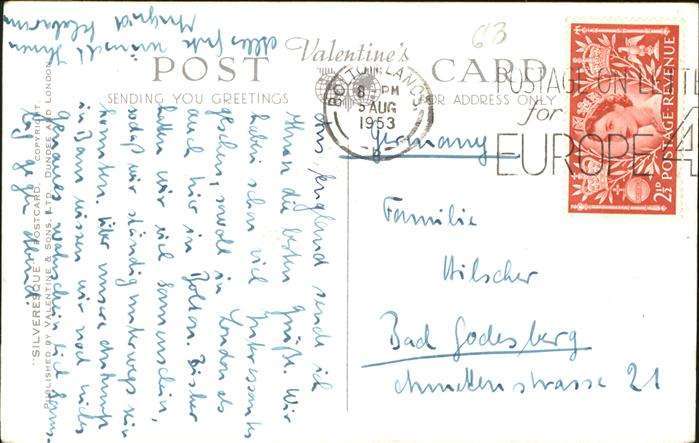 POST Valentine's CARD
SENDING YOU GREETINGS
FOR ADDRESS ONLY
63
BOLTON LANCS
8 PM
5 AUG
1953
POSTAGE ON LETTE
for
EUROPE 4
2½D POSTAGE REVENUE
"SILVERESQUE" POSTCARD. COPYRIGHT.
PUBLISHED BY VALENTINE & SONS, LTD. DUNDEE AND LONDON
Aus England sende ich
Ihnen die besten Grüße. Wir
haben schon viel Interessantes
gesehen, sowohl in London als
auch hier in Bolton. Bisher
hatten wir viel Sonnenschein,
sodaß wir ständig unterwegs sein
konnten. Über unsere Ankunft
in Bonn wissen wir noch nichts
Genaues, wahrscheinlich Sams-
tag gegen Abend.
Alles Gute wünscht Ihnen
Germany
Familie
Hilscher
Bad Godesberg
strasse 21